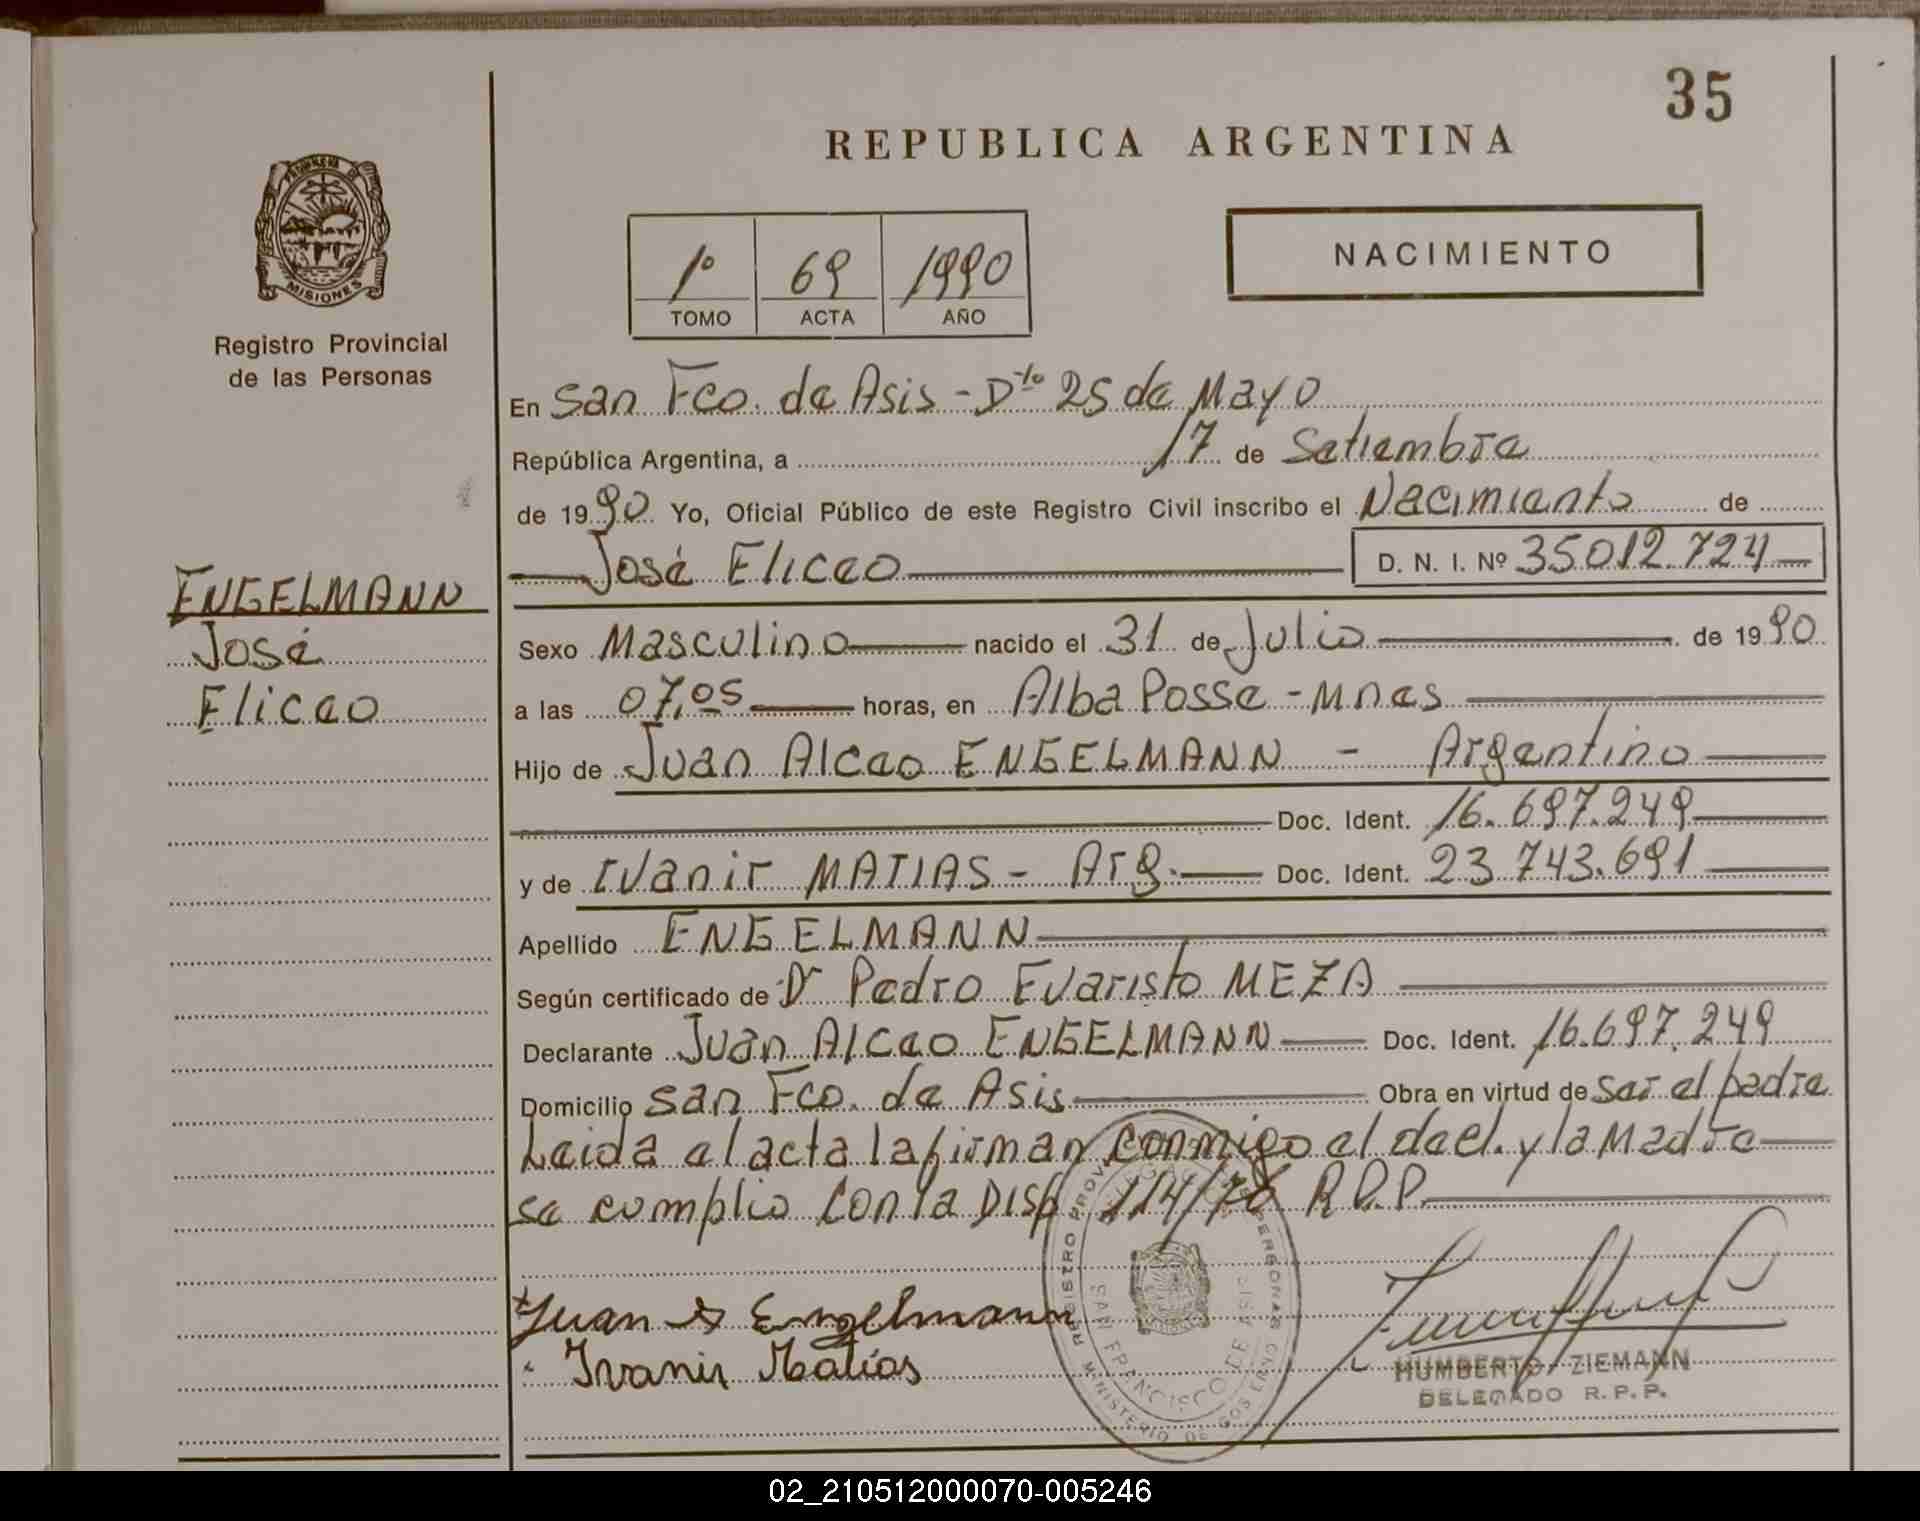 35
REPUBLICA ARGENTINA
PROVINCIA DE
MISIONES
Registro Provincial
de las Personas
1º 69 1990
TOMO ACTA AÑO
NACIMIENTO
En San Fco. de Asis - Dto 25 de Mayo
República Argentina, a 17 de Setiembre
de 1990 Yo, Oficial Público de este Registro Civil inscribo el Nacimiento de
José Eliceo D. N. I. Nº 35012.724
ENGELMANN
José
Eliceo
Sexo Masculino nacido el 31 de Julio de 1990
a las 07,05 horas, en Alba Posse - Mnes
Hijo de Juan Alceo ENGELMANN - Argentino
Doc. Ident. 16.697.249
y de Ivanir MATIAS - Arg. Doc. Ident. 23.743.691
Apellido ENGELMANN
Según certificado de Dr Pedro Evaristo MEZA
Declarante Juan Alceo ENGELMANN Doc. Ident. 16.697.249
Domicilio San Fco. de Asis Obra en virtud de ser el padre
Leida el acta la firman conmigo el decl. y la Madre
se cumplio con la Disp 114/76 R.P.P.
Juan A Engelmann
Ivanir Matias
SAN FRANCISCO DE ASIS
HUMBERTO ZIEMANN
DELEGADO R. P. P.
02_210512000070-005246